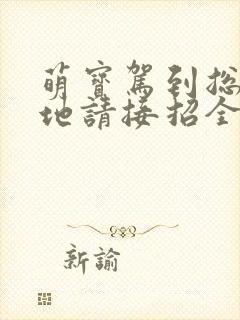 萌寶駕到総
地請接招全
新諭